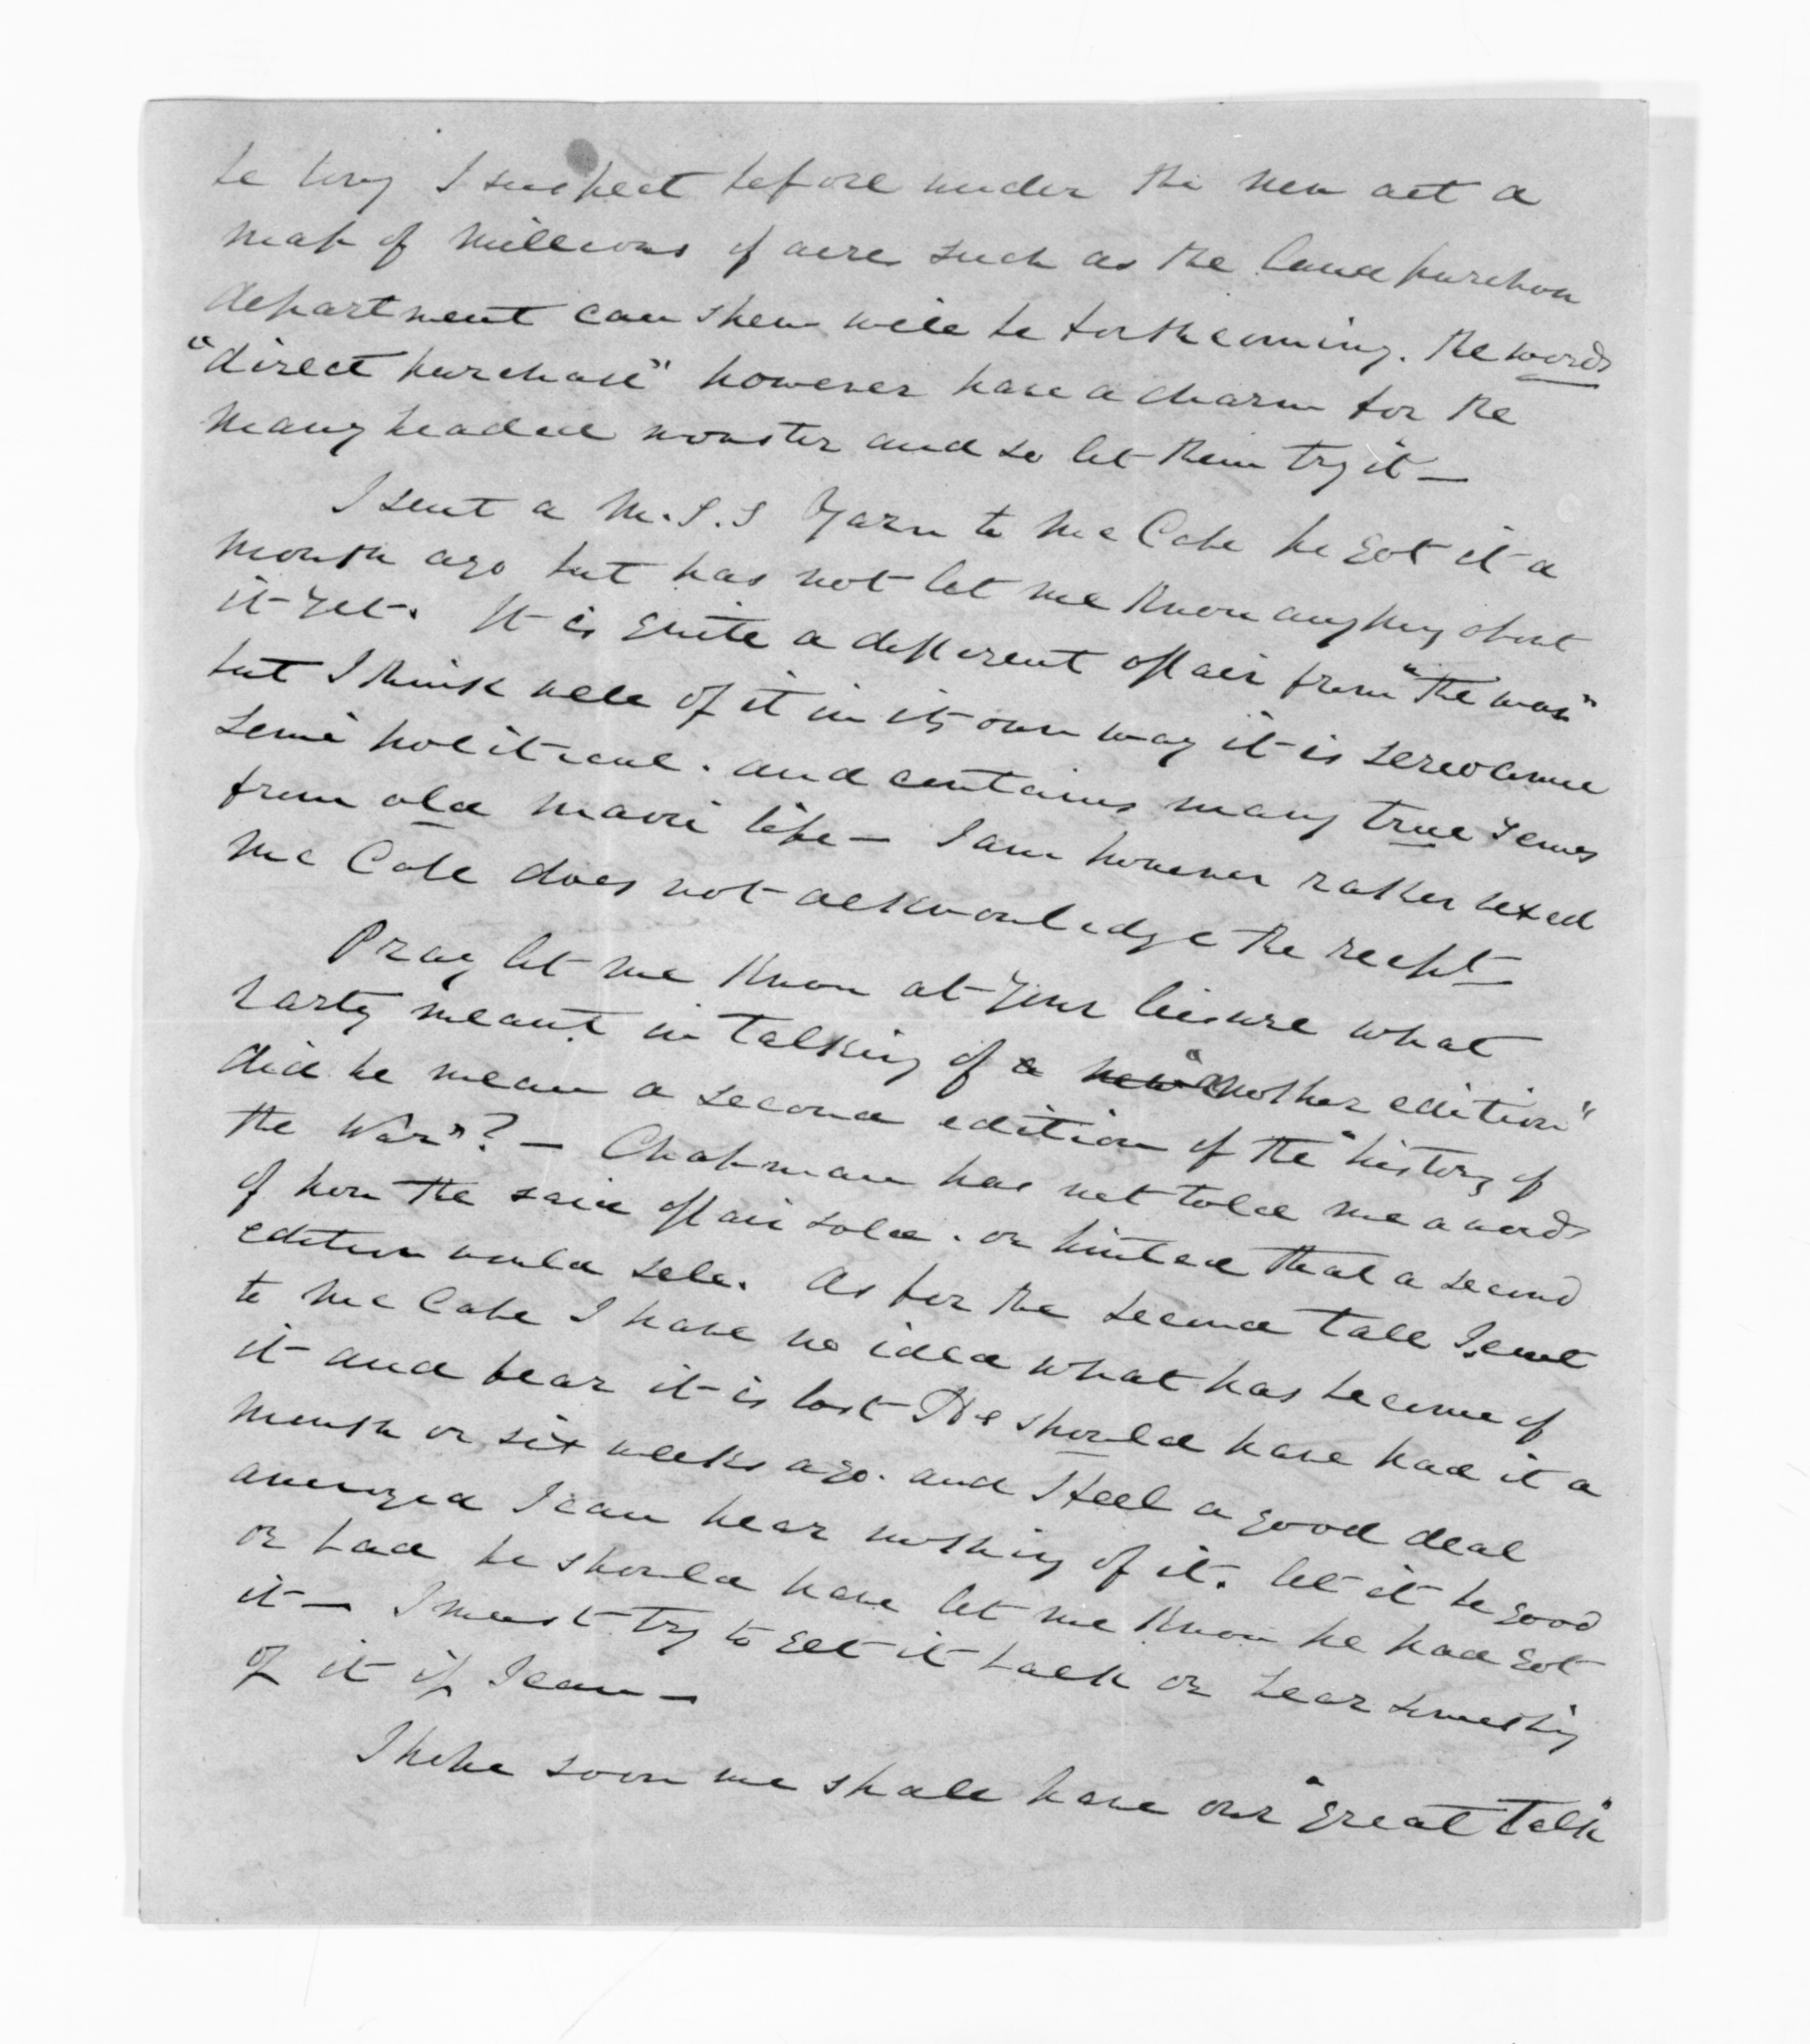 be long I suspect before under the new act a
map of millions of acres such as the land purchase
department can shew will be forthcoming. The words
"direct purchase" however have a charm for the
many headed monster and so let them try it —
I sent a M.S.S Yarn to McCabe he got it a
month ago but has not let me know anything about
it yet. It is quite a different affair from "the war"
but I think well of it in its own way it is seriocomic
semi political. and contains many true scenes
from old maori life — I am however rather vexed
McCabe does not acknowledge the receipt —
Pray let me know at your leisure what
party meant in talking of a new "another edition"
did he mean a second edition of the "history of
the War"? — Chapman has not told me a word
of how the said affair sold. or hinted that a second
edition would sell. As for the second tale I sent
to McCabe I have no idea what has become of
it and fear it is lost He should have had it a
month or six weeks ago. and I feel a good deal
annoyed I can hear nothing of it. let it be good
or bad he should have let me know he had got
it — I must try to get it back or hear something
of it if I can —
I hope soon we shall have our "great talk"